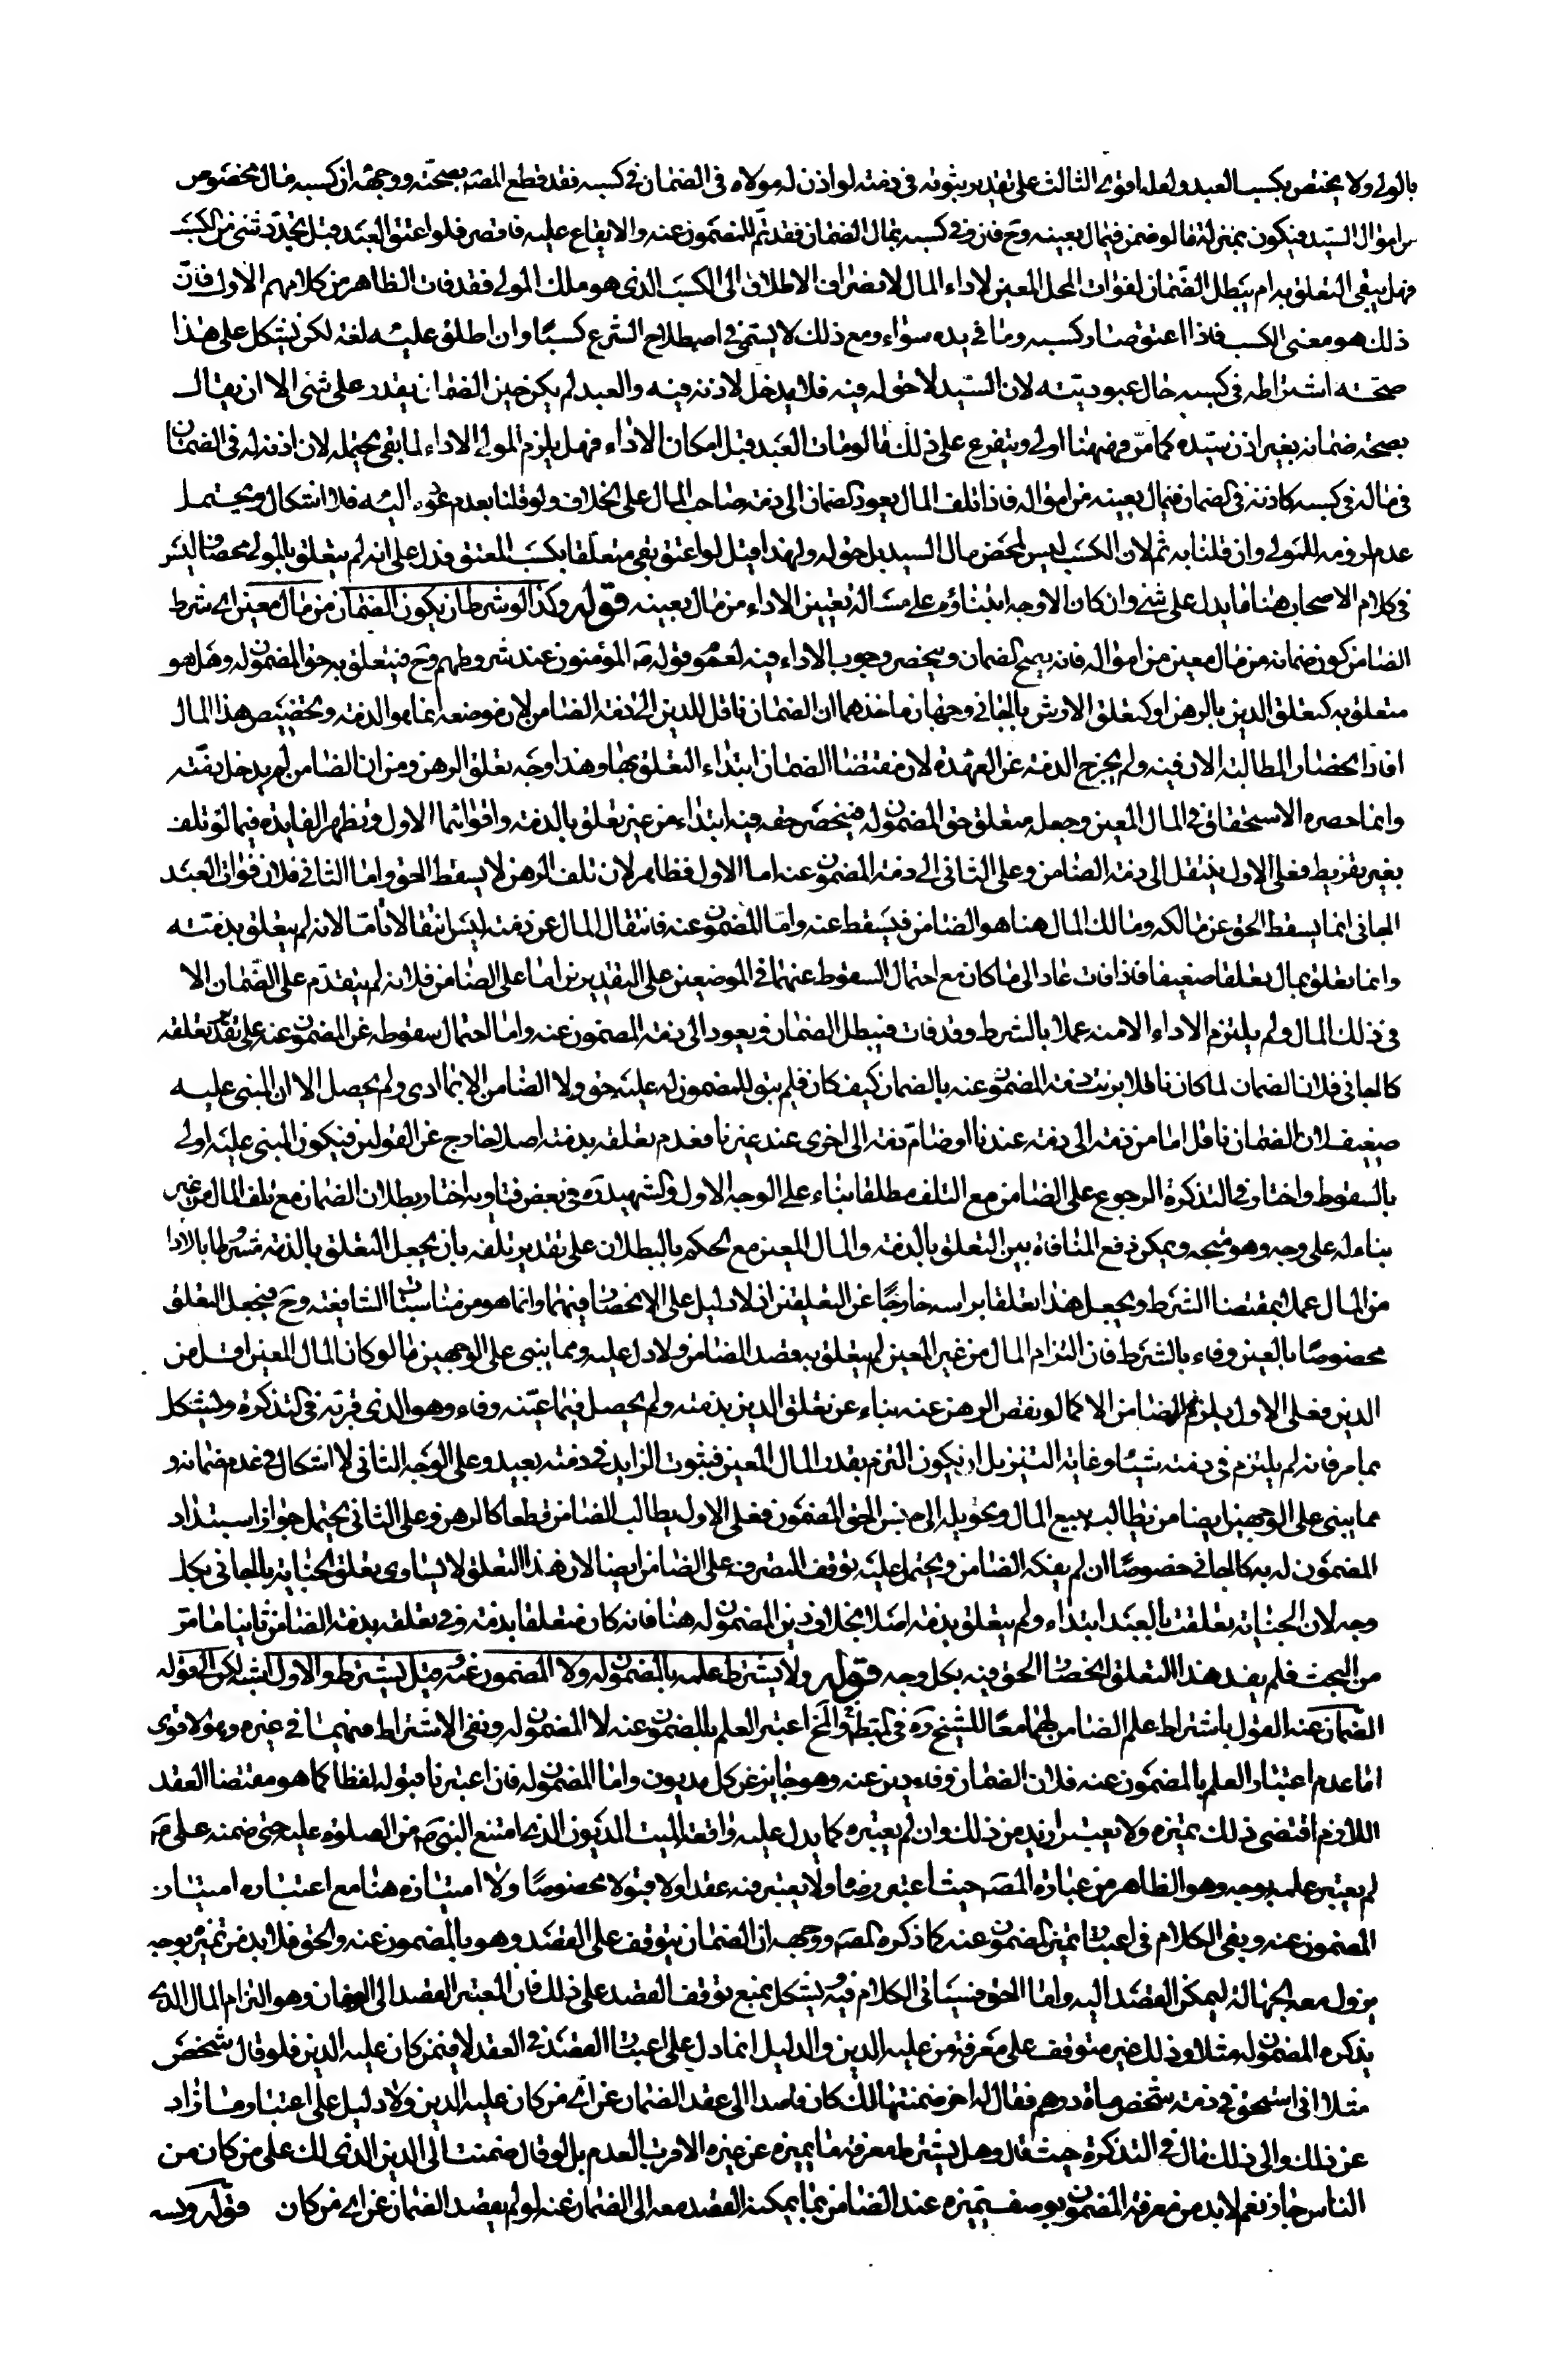 بالمولى ولا يختص بكسب العبد ولعله اقوى الثالث على تقدير ثبوته في ذمته لو اذن له مولاه في الضمان في كسبه فقد قطع المصّ بصحته ووجهه ان كسبه مال مخصوص
من اموال السيد فيكون بمنزلة ما لو ضمن في مال بعينه وح فان وفى كسبه بمال الضمان فقد تم للمضمون عنه والايفاع عليه فاقصر فلو اعتق العبد قبل تجدد شئ من الكسب
فهل يبقى التعلق به ام يبطل الضمان لفوات المحل المعين لاداء المال لانصراف الاطلاق الى الكسب الذي هو ملك المولى فقد فات الظاهر من كلامهم الاول فان
ذلك هو معنى الكسب فاذا اعتق صار كسبه وما في يده سواء ومع ذلك لا يسمى في اصطلاح الشرع كسبًا وان اطلق عليه لغة لكن يشكل على هذا
صحته اشتراطه في كسبه حال عبوديته لان السيد لا حق له فيه فلا يدخل لاذنه فيه والعبد لم يكن حين الضمان يقدر على شئ الا ان يقال
بصحة ضمانه بغير اذن سيده كما مرّ فههنا اولى ويتفرع على ذلك ما لو مات العبد قبل امكان الاداء فهل يلزم المولى الاداء لما بقي يحتمله لان اذنه له في الضمان
في ماله في كسبه كاذنه في لضمان في مال بعينه من امواله فاذا تلف المال يعود لضمان الى ذمة صاحب المال على الخلاف ولو قلنا بعدم عوده اليه فلا اشكال ويحتمل
عدم لزومه للمولى وان قلنا به ثم لان الكسب ليس لمحض مال السيد بل حق له ولهذا قيل لو اعتق بقي متعلقا بكسب المعتق فدل على انه لم يتعلق بالمولى محضا وليس
في كلام الاصحاب هنا ما يدل على شئ وان كان الاوجه ابتناؤه على مسالة تعيين الاداء من مال بعينه قوله وكذا لو شرط ان يكون الضمان من مال معين اي شرط
الضامن كون ضمانه من مال معين من امواله فانه يصح لضمان وينحصر وجوب الاداء فيه لعموم قوله ص المؤمنون عند شروطهم وح فيتعلق به حق المضمون له وهل هو
متعلق به كتعلق الدين بالرهن او كتعلق الارش بالجاني وجهان ماخذهما ان الضمان ناقل للدين الى ذمة الضامن لان موضعه انما هو الذمة وتخصيص هذا المال
افاد انحصار المطالبة الان فيه ولم يخرج الذمة عن العهدة لان مقتضا الضمان ابتداء التعلق بها وهذا وجه تعلق الرهن ومن ان الضامن لم يدخل ذمته
وانما حصر الاستحقاق في المال المعين وجعله متعلق حق المضمون له فينحصر حقه فيه ابتداء من غير تعلق بالذمة واقواهما الاول وتظهر الفايدة فيما لو تلف
بغير تفريط فعلى الاول ينتقل الى ذمة الضامن وعلى الثاني الى ذمة المضمون عنه اما الاول فظاهر لان تلف الرهن لا يسقط الحق واما الثاني فلان فوات العبد
الجاني انما يسقط الحق عن مالكه ومالك المال هنا هو الضامن فيسقط عنه واما المضمون عنه فانتقال المال عن ذمته ليس انتقالا تاما لانه لم يتعلق بذمته
وانما تعلق بمال تعلقا ضعيفا فاذا فات عاد الى ما كان مع احتمال السقوط عنهما في الموضعين على التقديرين اما على الضامن فلانه لم يتقدم على الضمان الا
في ذلك المال ولم يلتزم الاداء الا منه عملا بالشرط وقد فات فيبطل الضمان ويعود الى ذمة المضمون عنه واما احتمال سقوطه عن المضمون عنه على تقدير تعلقه
كالجاني فلان الضمان لما كان ناقلا برئت ذمة المضمون عنه بالضمان كيف كان فلم يبق للمضمون له عليه حق ولا الضامن الا بما ادى ولم يحصل الا ان المبنى عليه
ضعيف لان الضمان ناقل اما من ذمة الى ذمة عندنا او ضام ذمة الى اخرى عند غيرنا فعدم تعلقه بذمة اصلا خارج عن القولين فيكون المبنى عليه اولى
بالسقوط واختار في التذكرة الرجوع على الضامن مع التلف مطلقا بناء على الوجه الاول والشهيد ره في بعض فتاويه اختار بطلان الضمان مع تلف المال من غير
بناء له على وجه وهو متجه ويمكن دفع المنافاة بين التعلق بالذمة والمال المعين مع الحكم بالبطلان على تقدير تلفه بان يجعل التعلق بالذمة مشروطا بالاداء
من المال عملا بمقتضا الشرط ويجعل هذا تعلقا براسه خارجًا عن التعلقين اذ لا دليل على الانحصار فيهما وانما هو من مناسبات الشافعية وح فيجعل التعلق
مخصوصًا بالعين وفاء بالشرط فان التزام المال من غير المعين لم يتعلق به قصد الضامن ولا دل عليه ومما ينبني على الوجهين ما لو كان المال المعين اقل من
الدين فعلى الاول يلزم الضامن الاكمال لو نقص الرهن عنه بناء عن تعلق الدين بذمته ولم يحصل فيما عينه وفاء وهو الذي قربه في لتذكرة ويشكل
بما مر فانه لم يلتزم في ذمته شيئا وغاية التنزيل ان يكون التزم بقدر المال المعين فثبوت الزايد في ذمته بعيد وعلى الوجه الثاني لا اشكال في عدم ضمانه و
مما يبنى على الوجهين ايضا من يطالب ببيع المال وتحويله الى جنس الحق المضمون فعلى الاول يطالب الضامن قطعا كالرهن وعلى الثاني يحتمل جواز استبداد
المضمون له به كالجاني خصوصًا ان لم يفكه الضامن ويحتمل عليه توقف التصرف على الضامن ايضا لان هذا التعلق لا يساوي تعلق الجناية بالجاني بكل
وجه لان الجناية تعلقت بالعبد ابتداء ولم يتعلق بذمة اصلا بخلاف دين المضمون له هنا فانه كان متعلقا بذمة وفي تعلقه بذمة الضامن ثانيا ما مر
من البحث فلم يفد هذا التعلق انحصار الحق فيه بكل وجه قوله ولا يشترط علمه بالمضمون له ولا المضمون عنه وقيل يشترط والاول اشبه لكن القوله
الضمان عنه القول باشتراط علم الضامن بهما معًا للشيخ ره في المبسوط والمخ اعتبر العلم بالمضمون عنه لا المضمون له ونفى الاشتراط فيهما في غيره وهو الاقوى
اما عدم اعتبار العلم بالمضمون عنه فلان الضمان وفاء دين عنه وهو جايز عن كل مديون واما المضمون له فان اعتبرنا قبوله لفظا كما هو مقتضا العقد
اللازم اقتضى ذلك تميزه ولا يعتبر ازيد من ذلك وان لم يعتبره كما يدل عليه واقعة الميت المديون الذي امتنع النبي ص من الصلوة عليه حتى ضمنه علي ص
لم يعتبر علمه بوجه وهو الظاهر من عبارة المصّ حيث اعتبر رضاه ولا يعتبر فيه عقدا ولا قبولا مخصوصًا ولا امتيازه هنا مع اعتباره امتياز
المضمون عنه وبقي الكلام في اعتبار تميز المضمون عنه كما ذكره المصّ ووجهه ان الضمان يتوقف على القصد وهو بالمضمون عنه والحق فلا بد من تميزه بوجه
يزول معه الجهالة ليمكن القصد اليه واما الحق فسياتي الكلام فيه ويشكل بمنع توقف القصد على ذلك فان المعتبر القصد الى الضمان وهو التزام المال الذي
يذكره المضمون له مثلا وذلك غير متوقف على معرفة من عليه الدين والدليل انما دل على اعتبار القصد في العقد لا فيمن كان عليه الدين فلو قال شخص
مثلا اني استحق في ذمة شخص ماة درهم فقال له اخر ضمنتها لك كان قاصدا الى عقد الضمان عن اي من كان عليه الدين ولا دليل على اعتبار ما زاد
عن ذلك والى ذلك مال في التذكرة حيث قال وهل يشترط معرفة ما يميزه عن غيره الاقرب العدم بل لو قال ضمنت لك الدين الذي لك على من كان من
الناس جاز نعم لابد من معرفة المضمون بوصف يتميزه عند الضامن بما يمكنه القصد معه الى الضمان عنه لو لم يقصد الضمان عن اي من كان قوله ويسه